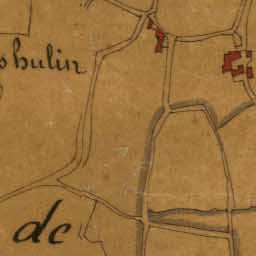 shulin
de